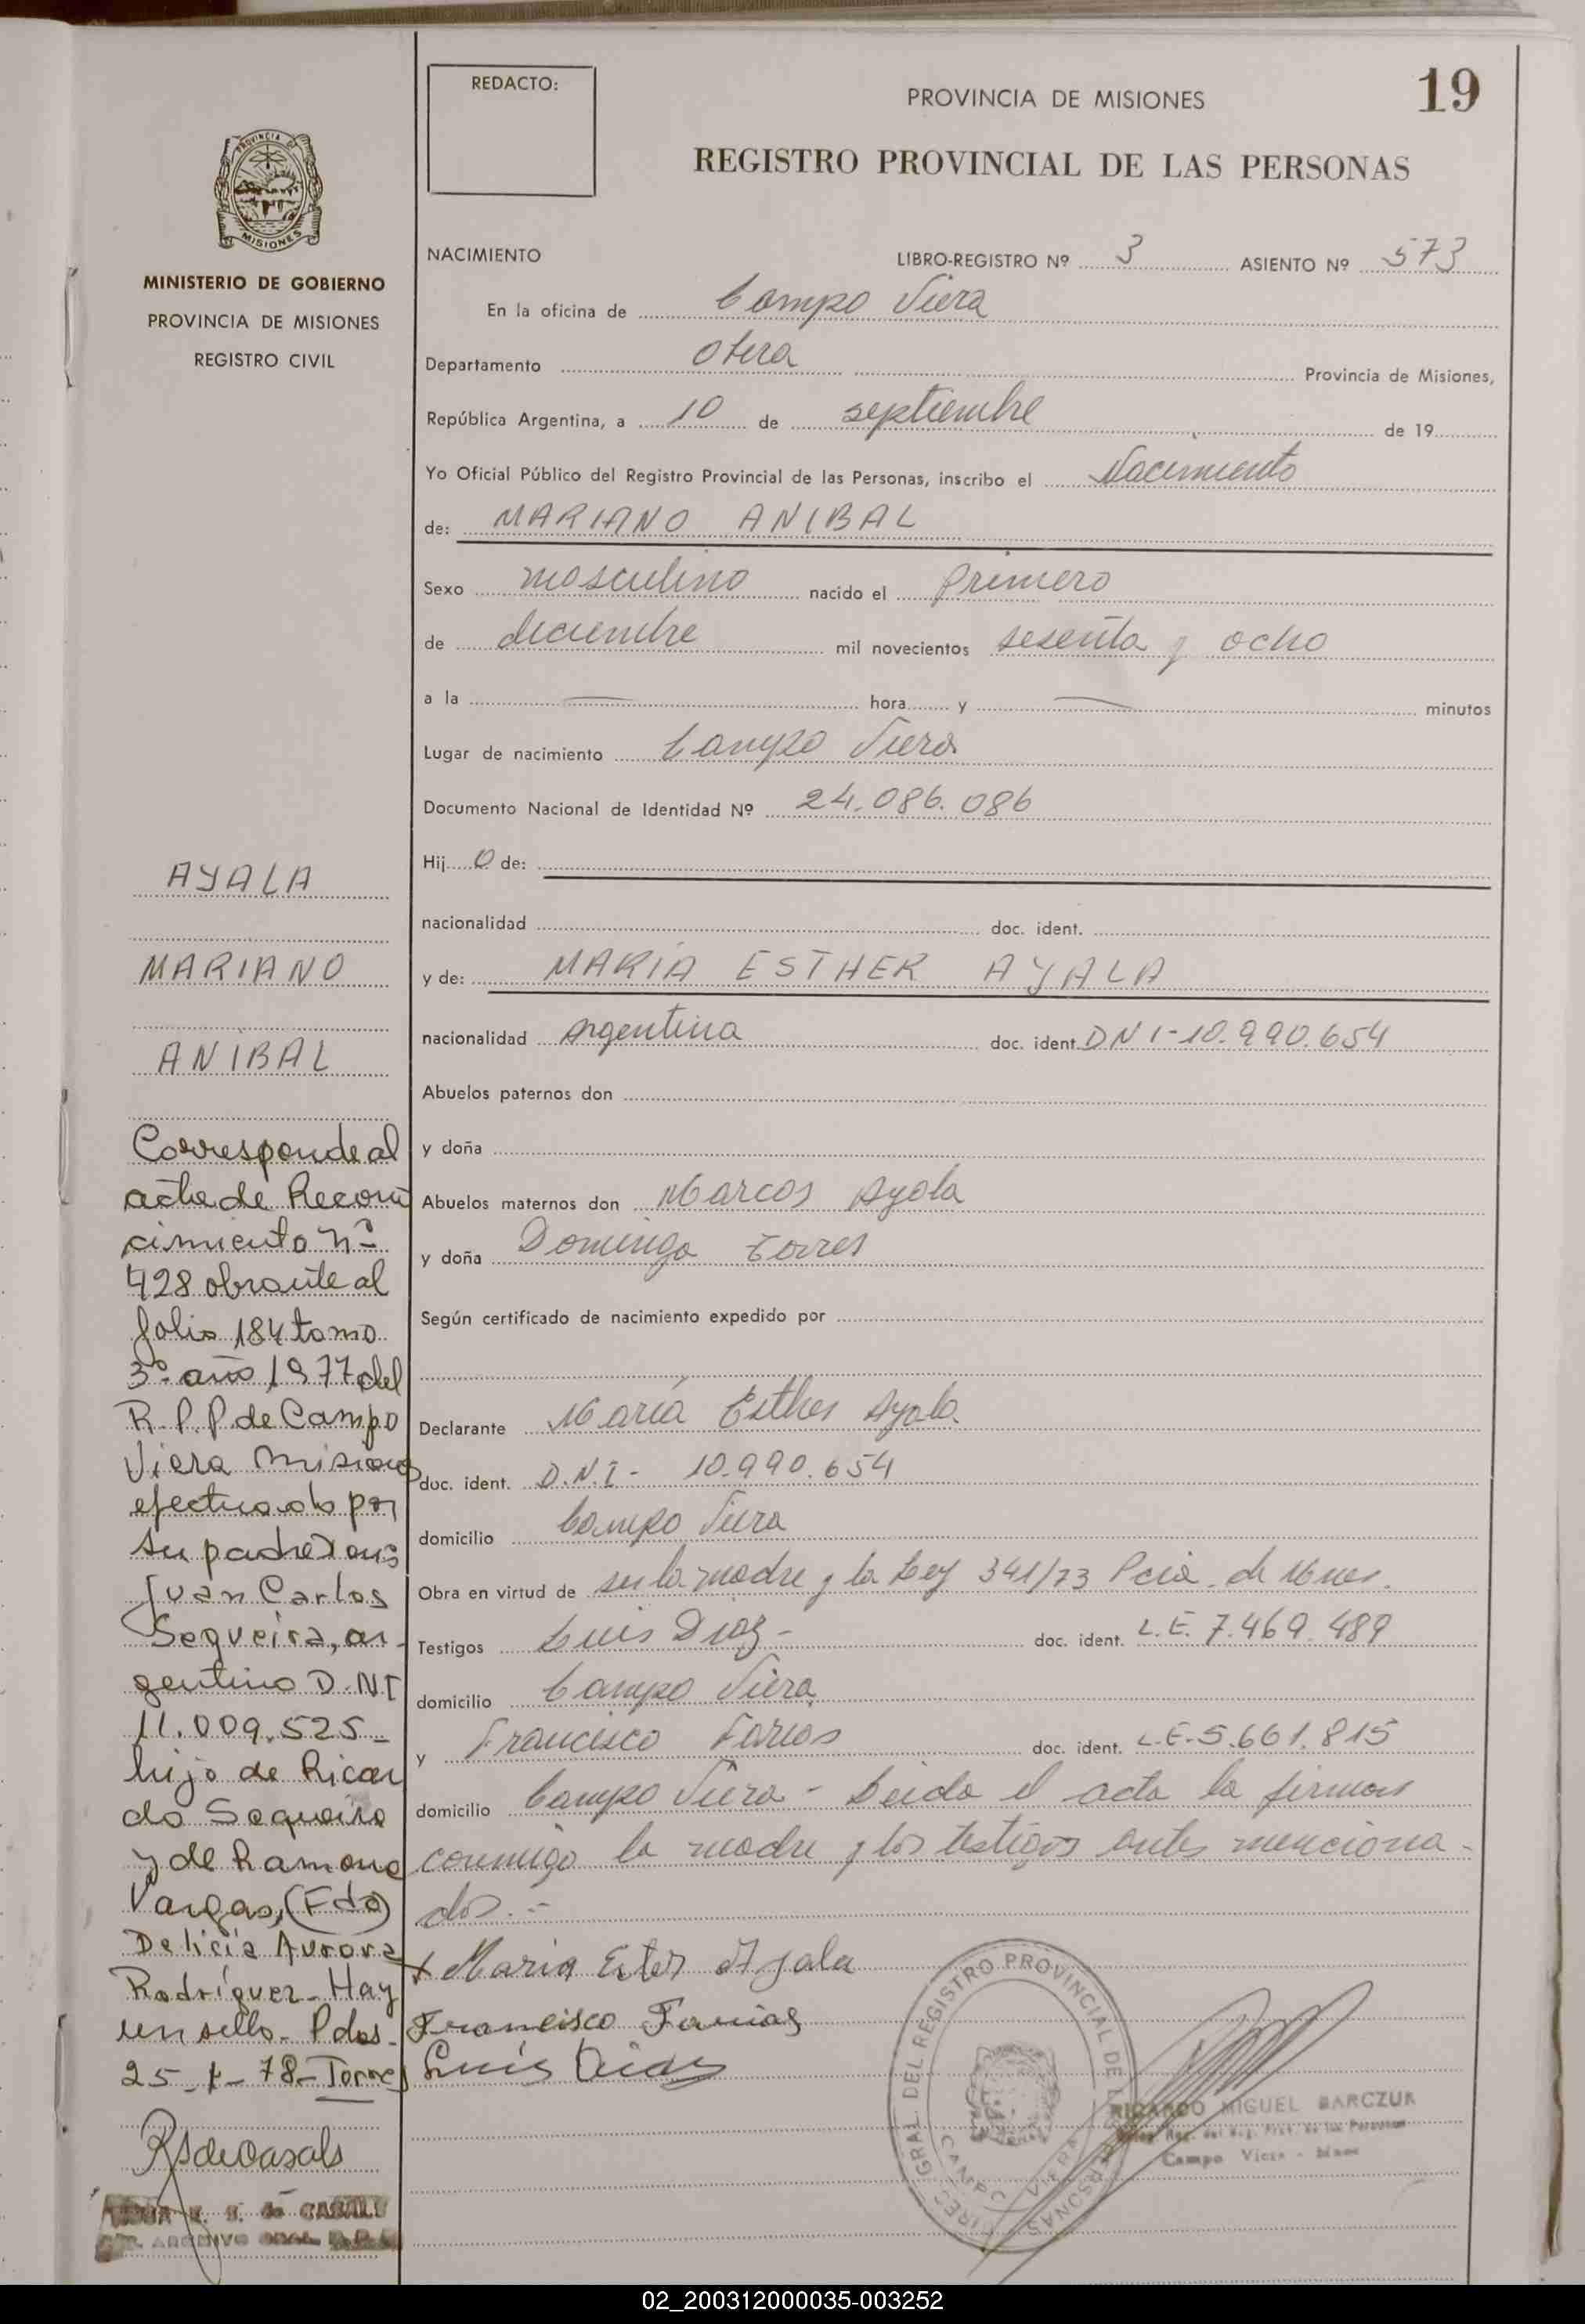 REDACTO:
PROVINCIA DE MISIONES
19
REGISTRO PROVINCIAL DE LAS PERSONAS
PROVINCIA DE
MISIONES
MINISTERIO DE GOBIERNO
PROVINCIA DE MISIONES
REGISTRO CIVIL
NACIMIENTO
LIBRO-REGISTRO Nº 3 ASIENTO Nº 573
En la oficina de Campo Viera
Departamento Oberá Provincia de Misiones,
República Argentina, a 10 de septiembre de 19
Yo Oficial Público del Registro Provincial de las Personas, inscribo el Nacimiento
de: MARIANO ANIBAL
Sexo masculino nacido el primero
de diciembre mil novecientos sesenta y ocho
a la — hora y — minutos
Lugar de nacimiento Campo Viera
Documento Nacional de Identidad Nº 24.086.086
Hij o de:
nacionalidad doc. ident.
y de: MARÍA ESTHER AYALA
nacionalidad Argentina doc. ident. DNI-10.990.654
Abuelos paternos don
y doña
Abuelos maternos don Marcos Ayala
y doña Dominga Torres
Según certificado de nacimiento expedido por
Declarante María Esther Ayala
doc. ident. D.N.I- 10.990.654
domicilio Campo Viera
Obra en virtud de ser la madre y la Ley 341/73 Pcia. de Mnes.
Testigos Luis Diaz- doc. ident. L.E. 7.469.489
domicilio Campo Viera
y Francisco Farias doc. ident. L.E-5.661.815
domicilio Campo Viera - Leida el acta la firman
conmigo la madre y los testigos antes menciona-
dos.-
x Maria Ester Ayala
Francisco Farias
Luis Diaz
AYALA
MARIANO
ANIBAL
Corresponde al
acta de Recono
cimiento nº
428 obrante al
folio 184 tomo
3º año 1977 del
R.P.P de Campo
Viera Misiones
efectuado por
su padre Dons
Juan Carlos
Sequeira, ar-
gentino D.NI
11.009.525-
hijo de Ricar
do Sequeira
y de Ramona
Vargas, (Fdo)
Delicia Aurora
Rodríguez- Hay
un sello- Pdas.
25- - 78- Torres
REGISTRO PROVINCIAL DE LAS PERSONAS
CAMPO VIERA
RICARDO MIGUEL BARCZUK
Campo Viera -
CASALS
ARCHIVO GRAL.
02_200312000035-003252